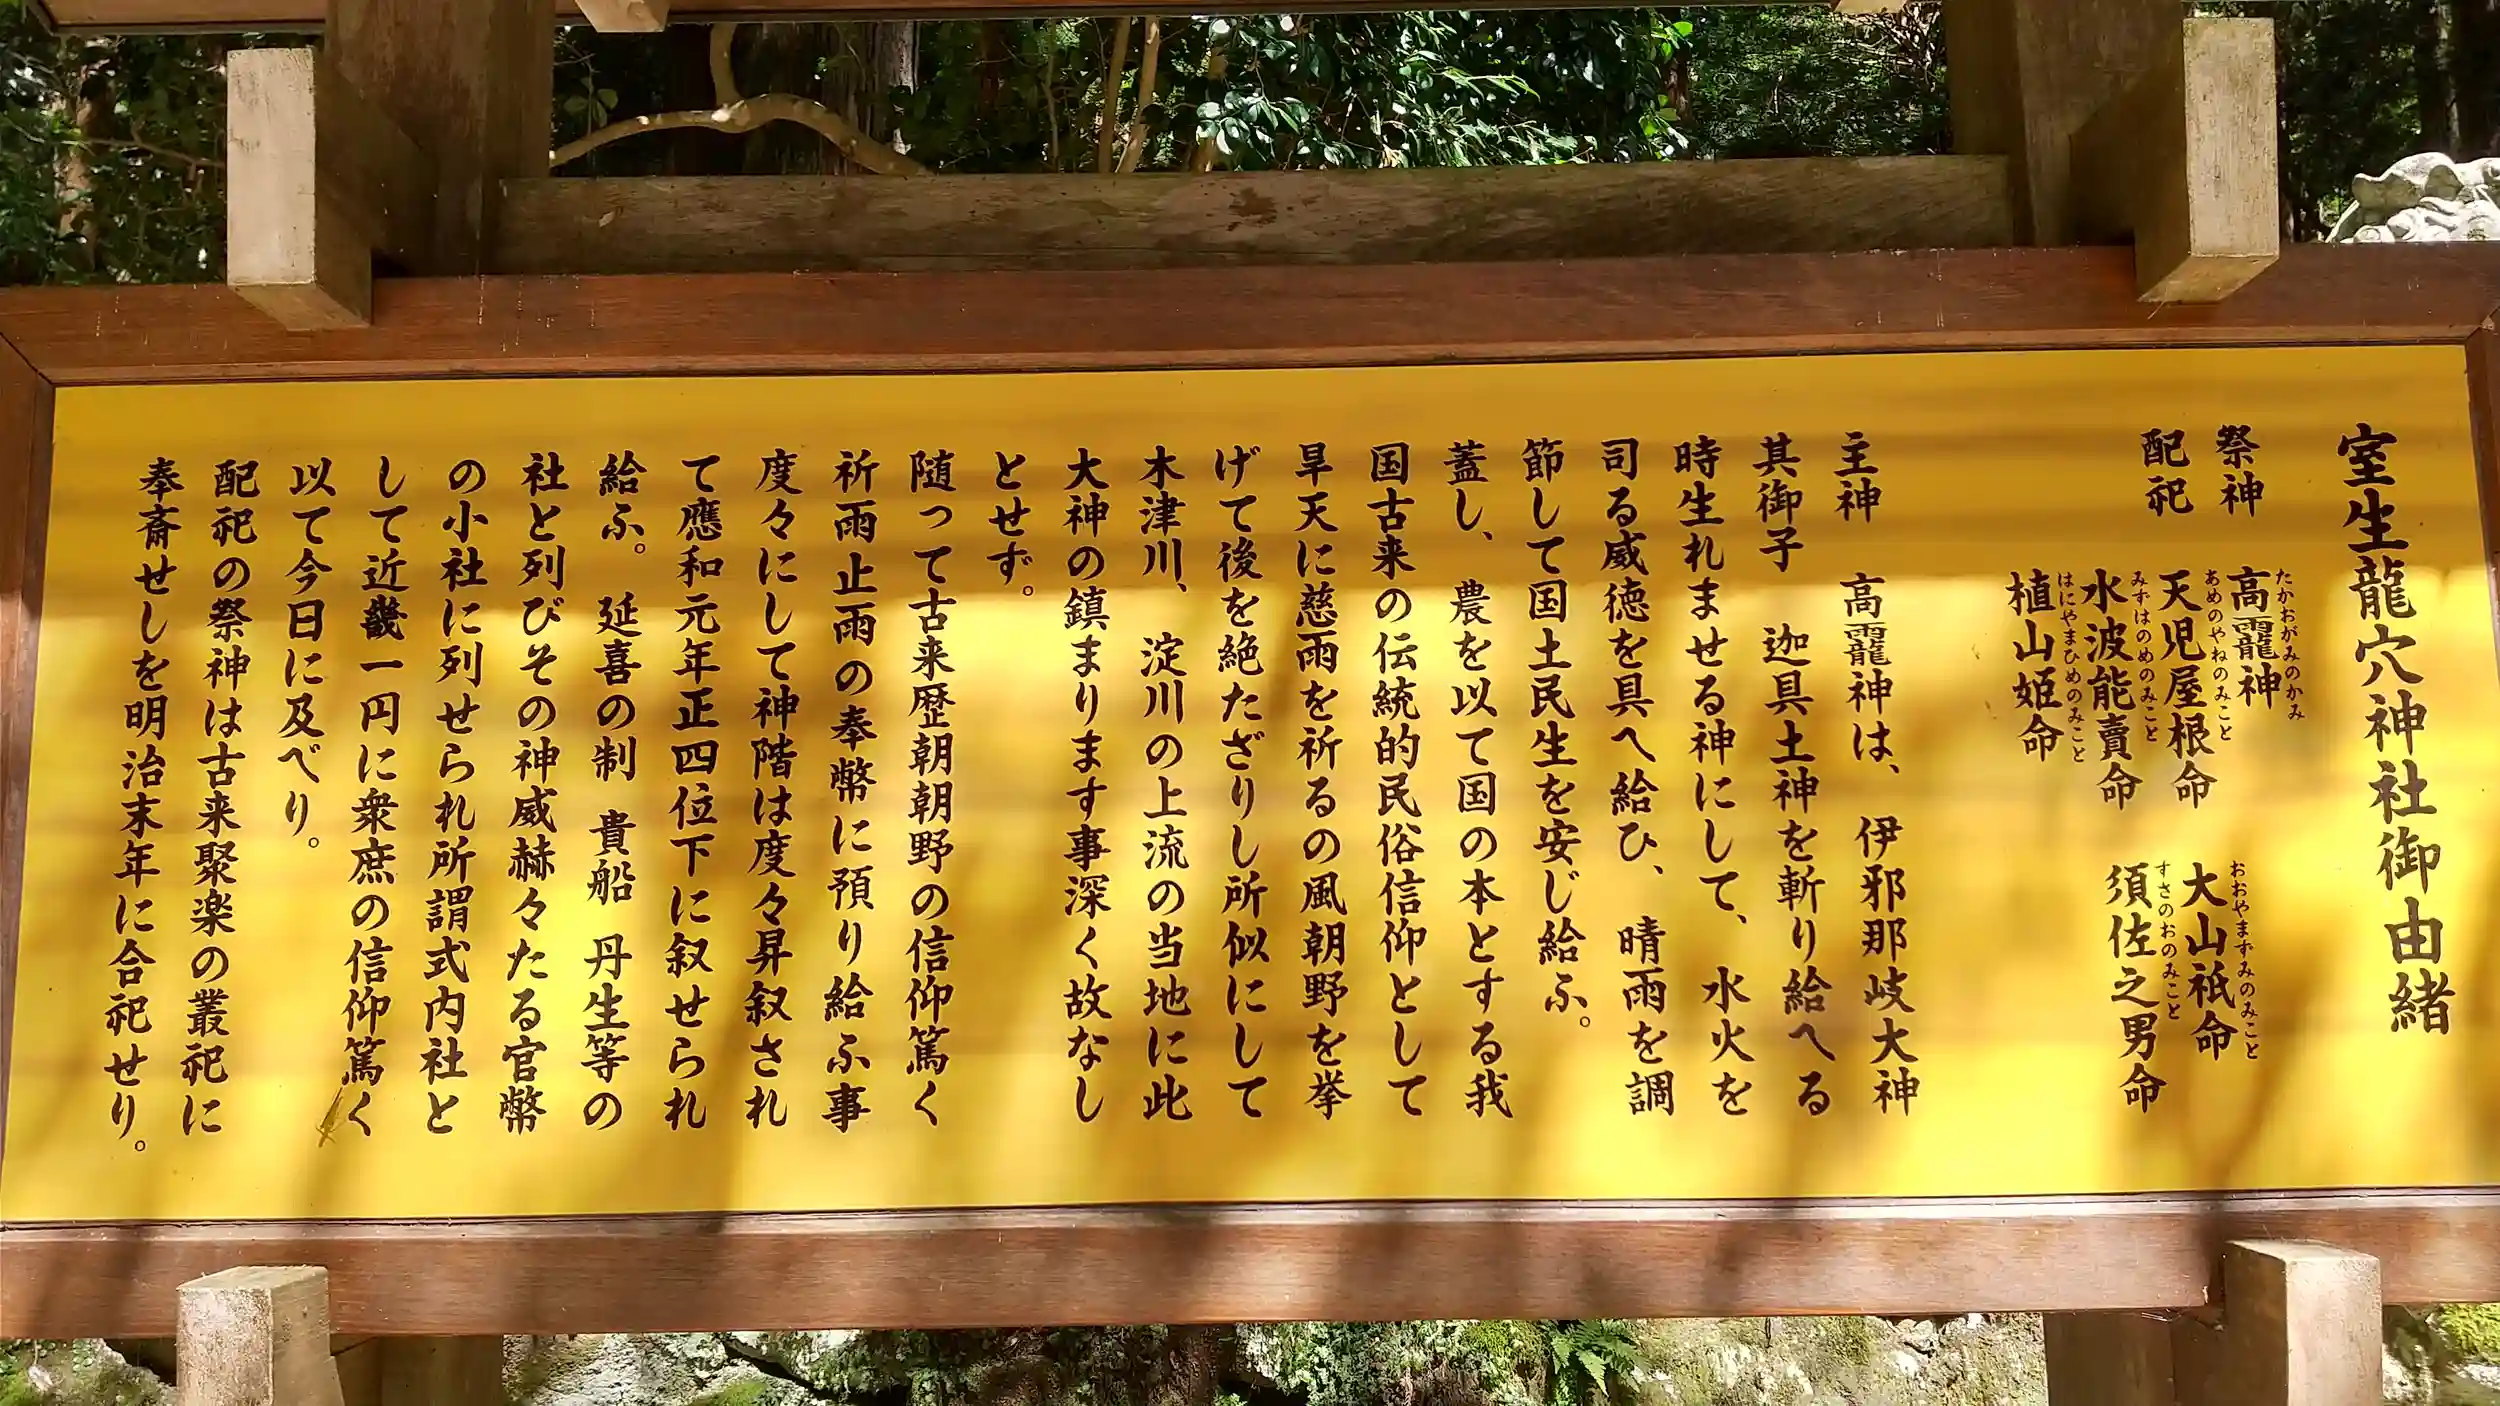 室生龍穴神社御由緒
祭神　高龗神
たかおがみのかみ
配祀　天児屋根命　大山祇命
あめのやねのみこと　おおやまずみのみこと
水波能賣命　須佐之男命
みずはのめのみこと　すさのおのみこと
植山姫命
はにやまひめのみこと
主神　高龗神は、伊邪那岐大神
其御子　迦具土神を斬り給へる
時生れませる神にして、水火を
司る威徳を具へ給ひ、晴雨を調
節して国土民生を安じ給ふ。
蓋し、農を以て国の本とする我
国古来の伝統的民俗信仰として
旱天に慈雨を祈るの風朝野を挙
げて後を絶たざりし所似にして
木津川、淀川の上流の当地に此
大神の鎮まります事深く故なし
とせず。
随って古来歴朝朝野の信仰篤く
祈雨止雨の奉幣に預り給ふ事
度々にして神階は度々昇叙され
て應和元年正四位下に叙せられ
給ふ。延喜の制　貴船　丹生等の
社と列びその神威赫々たる官幣
の小社に列せられ所謂式内社と
して近畿一円に衆庶の信仰篤く
以て今日に及べり。
配祀の祭神は古来聚楽の叢祀に
奉斎せしを明治末年に合祀せり。